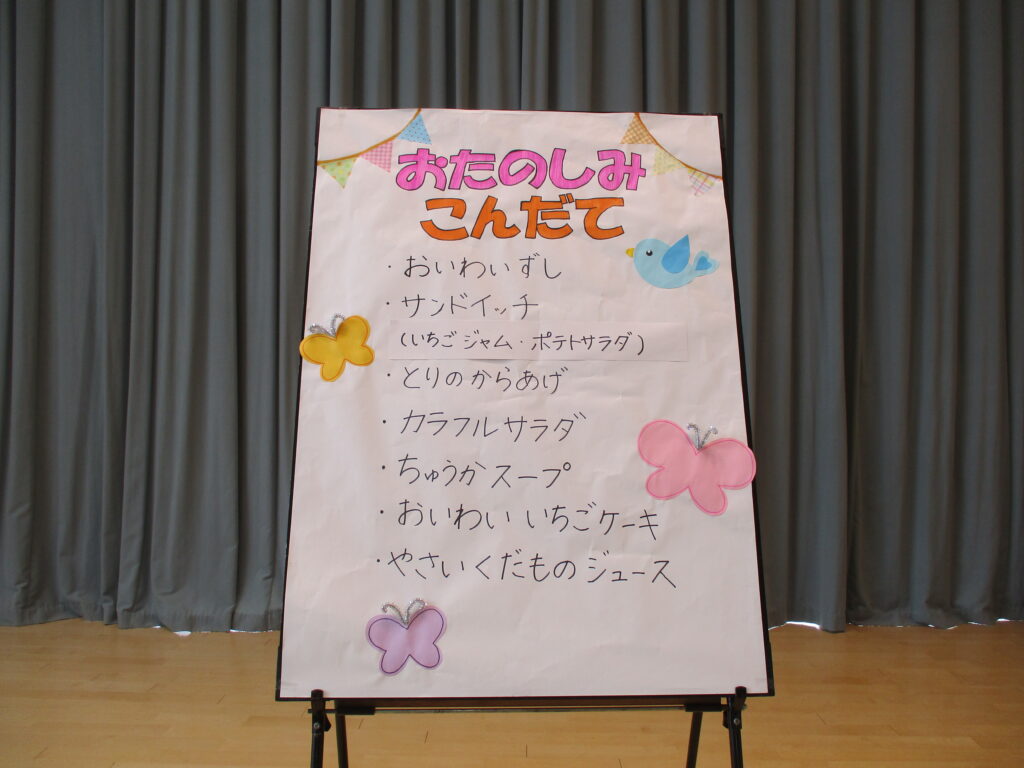 おたのしみ
こんだて
・おいわいずし
・サンドイッチ
(いちごジャム・ポテトサラダ)
・とりのからあげ
・カラフルサラダ
・ちゅうかスープ
・おいわいいちごケーキ
・やさいくだものジュース